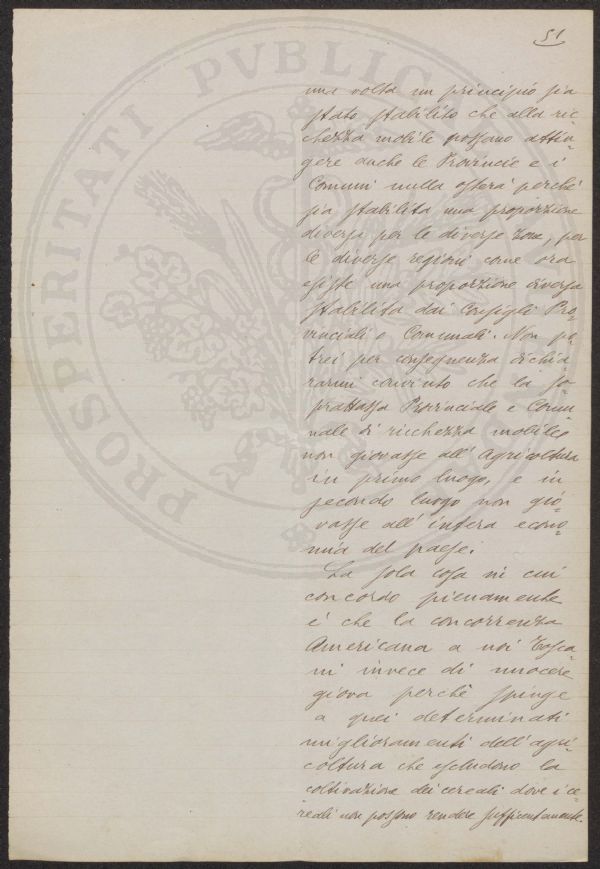 51
una volta un principio sia
stato stabilito che alla ric
chezza mobile possano attin
gere anche le Provincie e i
Comuni nulla osterà perché
sia stabilita una proporzione
diversa per le diverse zone, per
le diverse regioni come ora
esiste una proporzione diversa
stabilita dai Consigli Pro
vinciali e Comunali. Non po=
trei per conseguenza dichia
rarmi convinto che la so
prattassa Provinciale e Comu
nale di ricchezza mobile
non giovasse all'Agricoltura
in primo luogo, e in
secondo luogo non gio=
vasse all'intera econo=
mia del paese.
La sola cosa in cui
concordo pienamente
è che la concorrenza
Americana a noi Tosca=
ni invece di nuocere
giova perchè spinge
a quei determinati
miglioramenti dell'agri
coltura che escludono la
coltivazione dei cereali dove i ce=
reali non possono rendere sufficentemente.
PROSPERITATI PVBLIC